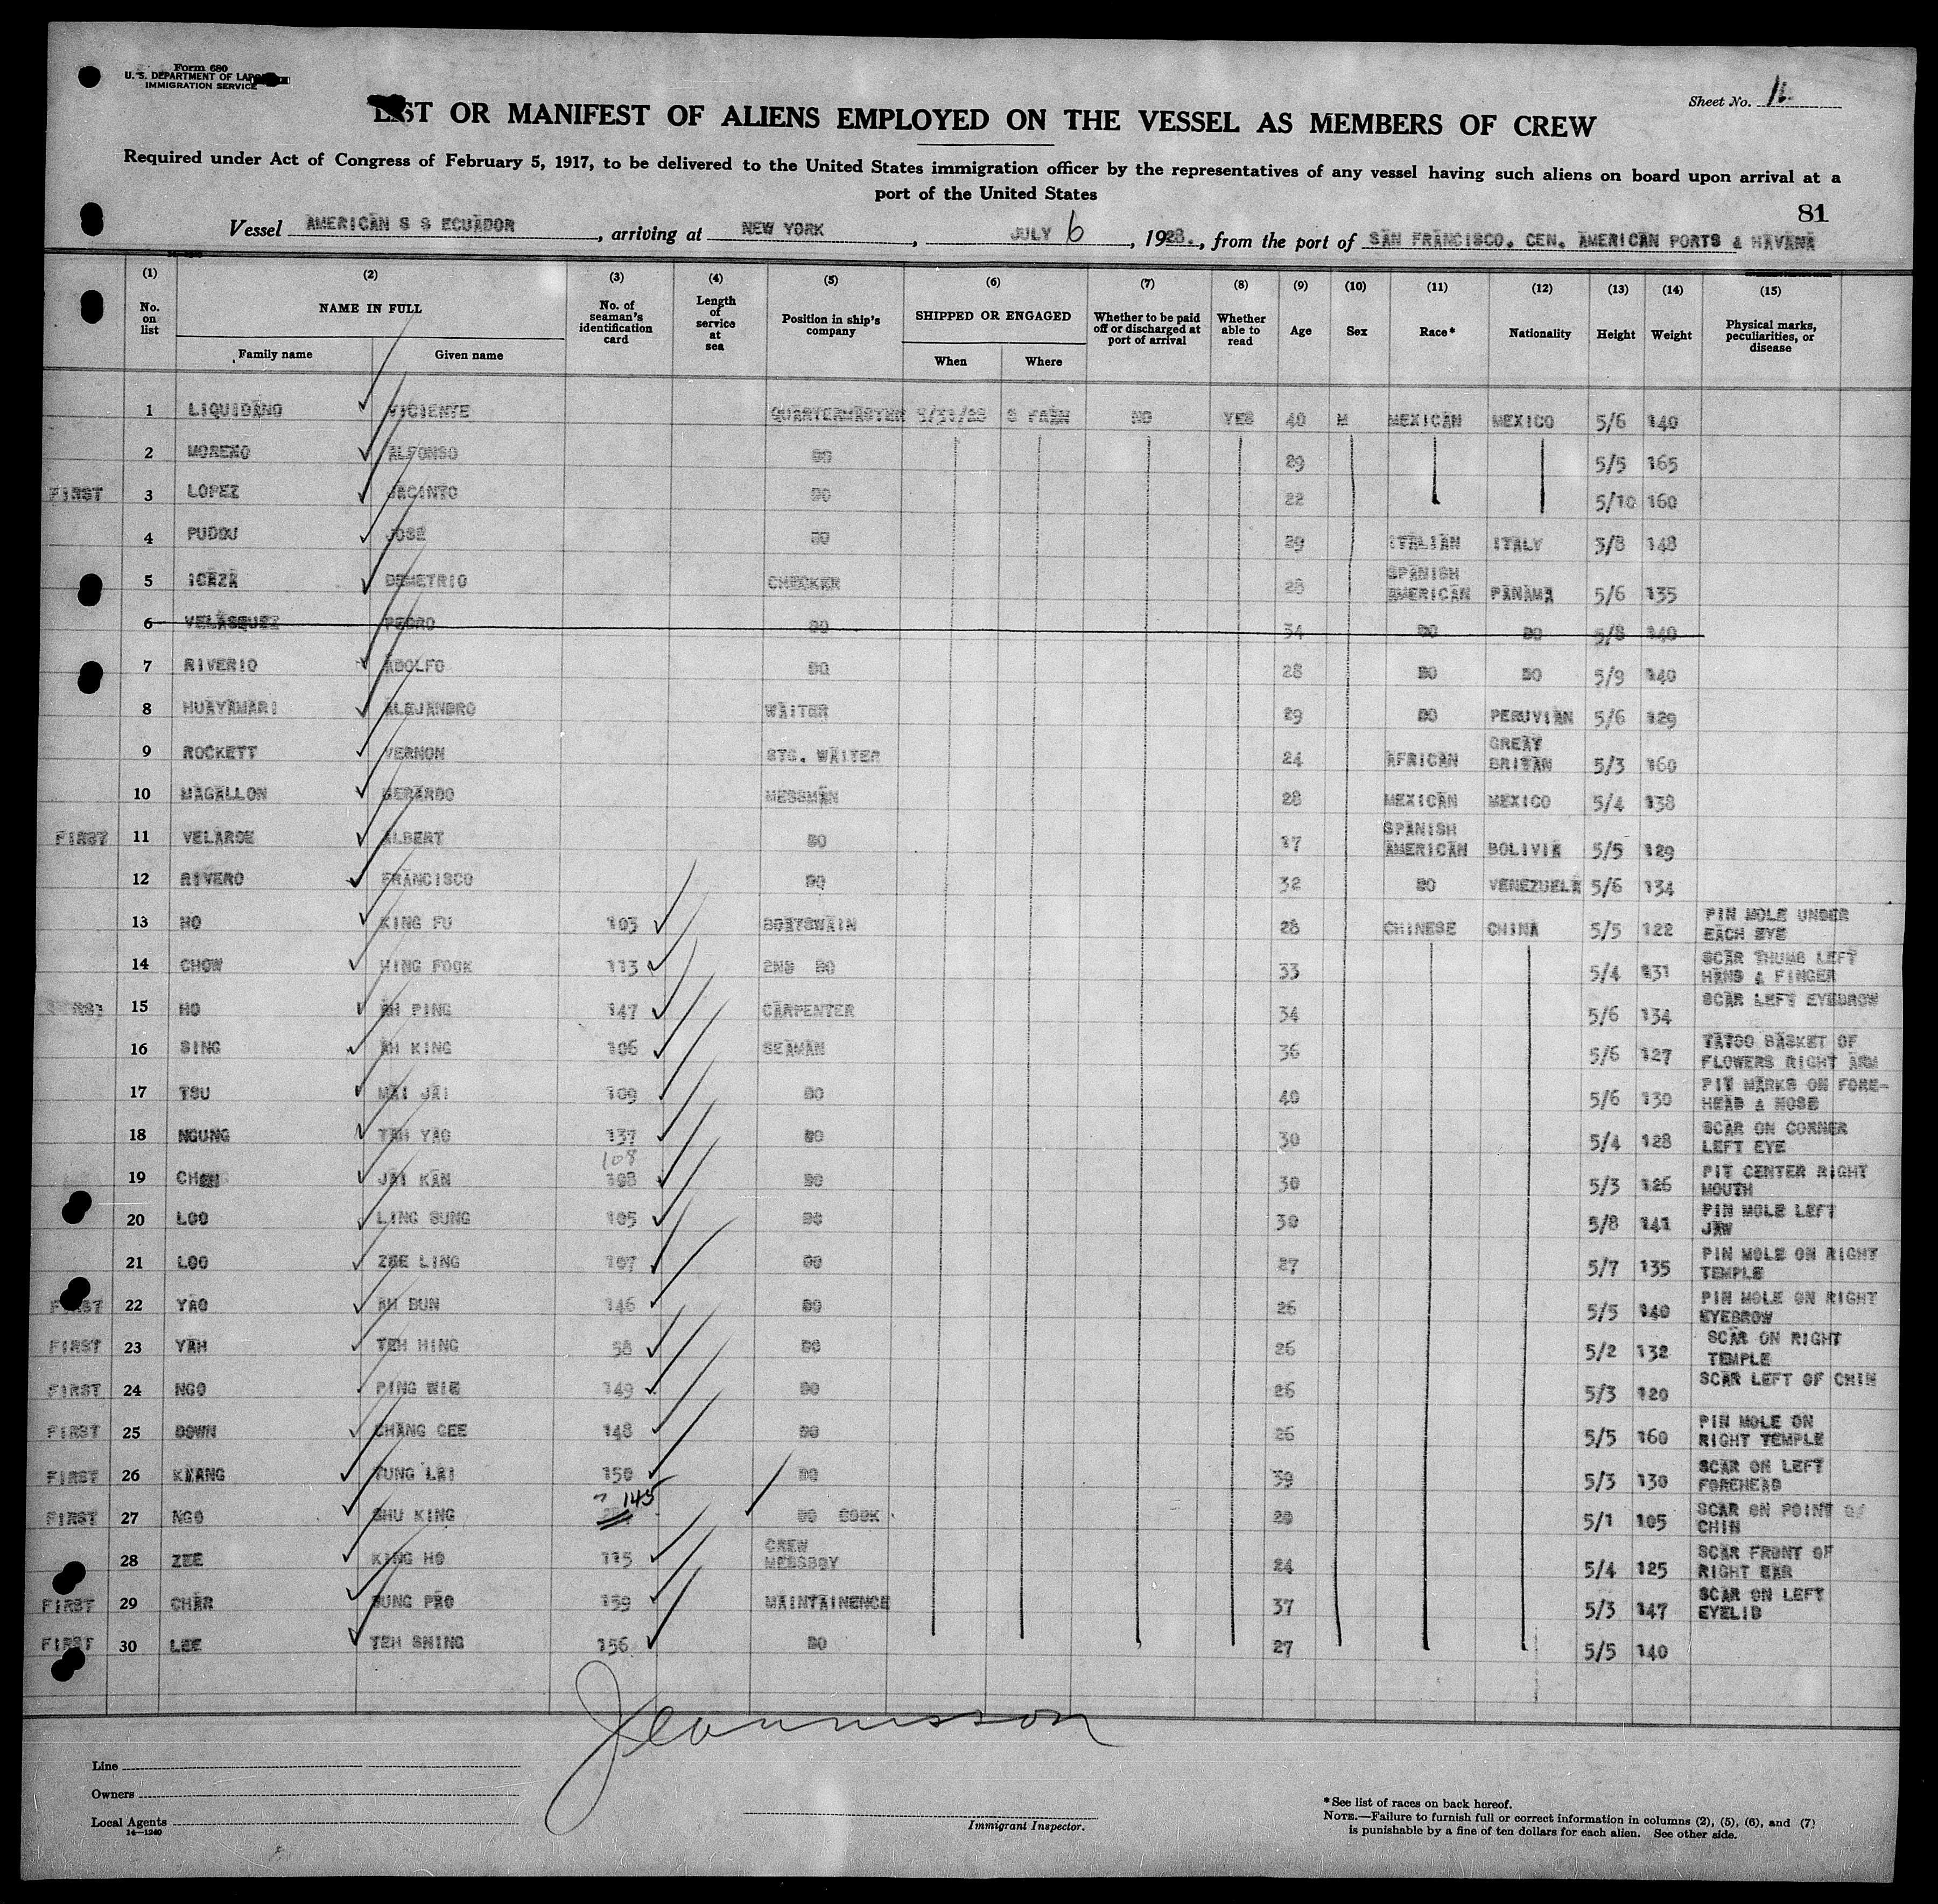 Form 680
U. S. DEPARTMENT OF LABOR
IMMIGRATION SERVICE
Sheet No.
LIST OR MANIFEST OF ALIENS EMPLOYED ON THE VESSEL AS MEMBERS OF CREW
Required under Act of Congress of February 5, 1917, to be delivered to the United States immigration officer by the representatives of any vessel having such aliens on board upon arrival at a
port of the United States
81
Vessel AMERICAN S S ECUADOR, arriving at NEW YORK, JULY 6, 1928., from the port of SAN FRANCISCO. CEN. AMERICAN PORTS & HAVANA
(1) (2) (3) (4) (5) (6) (7) (8) (9) (10) (11) (12) (13) (14) (15)
No. on list NAME IN FULL Family name Given name No. of seaman's identification card Length of service at sea Position in ship's company SHIPPED OR ENGAGED When Where Whether to be paid off or discharged at port of arrival Whether able to read Age Sex Race* Nationality Height Weight Physical marks, peculiarities, or disease
1 LIQUIDANO VICIENTE QUARTERMASTER S FRAN NO YES 40 M MEXICAN MEXICO 5/6 140
2 MORENO ALFONSO DO 29 5/5 165
FIRST 3 LOPEZ JACINTO DO 22 5/10 160
4 PUDDU JOSE DO 29 ITALIAN ITALY 5/8 148
5 ICAZA DEMETRIO CHECKER 28 SPANISH AMERICAN PANAMA 5/6 135
6 VELASQUEZ PEDRO DO 34 DO DO 5/8 140
7 RIVERIO ADOLFO DO 28 DO DO 5/9 140
8 HUAYAMARI ALEJANDRO WAITER 29 DO PERUVIAN 5/6 129
9 ROCKETT VERNON STG. WAITER 24 AFRICAN GREAT BRITAN 5/3 160
10 MAGALLON GERARDO MESSMAN 28 MEXICAN MEXICO 5/4 138
FIRST 11 VELARDE ALBERT DO 17 SPANISH AMERICAN BOLIVIA 5/5 129
12 RIVERO FRANCISCO DO 32 DO VENEZUELA 5/6 134
13 HO KING FU 103 BOATSWAIN 28 CHINESE CHINA 5/5 122 PIN MOLE UNDER EACH EYE
14 CHOW HING FOOK 113 2ND DO 33 5/4 131 SCAR THUMB LEFT HAND & FINGER
FIRST 15 HO AH PING 147 CARPENTER 34 5/6 134 SCAR LEFT EYEBROW
16 SING AH KING 106 SEAMAN 36 5/6 127 TATOO BASKET OF FLOWERS RIGHT ARM
17 TSU MAI JAI 109 DO 40 5/6 130 PIT MARKS ON FORE- HEAD & NOSE
18 NGUNG TAH YAO 137 DO 30 5/4 128 SCAR ON CORNER LEFT EYE
108
19 CHEN JAI KAN 108 DO 30 5/3 126 PIT CENTER RIGHT MOUTH
20 LOO LING SUNG 105 DO 30 5/8 141 PIN MOLE LEFT JAW
21 LOO ZEE LING 107 DO 27 5/7 135 PIN MOLE ON RIGHT TEMPLE
FIRST 22 YAO AH BUN 146 DO 26 5/5 140 PIN MOLE ON RIGHT EYEBROW
FIRST 23 YAH TEH HING 58 DO 26 5/2 132 SCAR ON RIGHT TEMPLE
FIRST 24 NGO PING 149 DO 26 5/3 120 SCAR LEFT OF CHIN
FIRST 25 DOWN CHANG GEE 148 DO 26 5/5 160 PIN MOLE ON RIGHT TEMPLE
FIRST 26 KWANG TUNG LAI 150 DO 39 5/3 130 SCAR ON LEFT FOREHEAD
145
FIRST 27 NGO SHU KING DO COOK 28 5/1 105 SCAR ON POINT OF CHIN
28 ZEE KING HO 115 CREW MESSBOY 24 5/4 125 SCAR FRONT OF RIGHT EAR
FIRST 29 CHAR SUNG PAO 159 MAINTAINENCE 37 5/3 147 SCAR ON LEFT EYELID
FIRST 30 LEE TEH SHING 156 DO 27 5/5 140
Line
Owners
Local Agents
14—1240
Immigrant Inspector.
*See list of races on back hereof.
NOTE.—Failure to furnish full or correct information in columns (2), (5), (6), and (7)
is punishable by a fine of ten dollars for each alien. See other side.